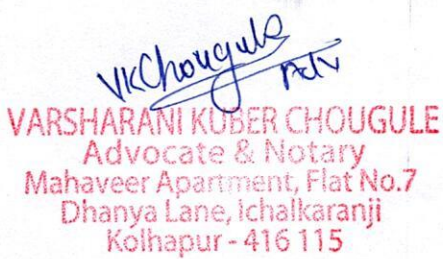 VKChougule
Adv
VARSHARANI KUBER CHOUGULE
Advocate & Notary
Mahaveer Apartment, Flat No.7
Dhanya Lane, Ichalkaranji
Kolhapur - 416 115